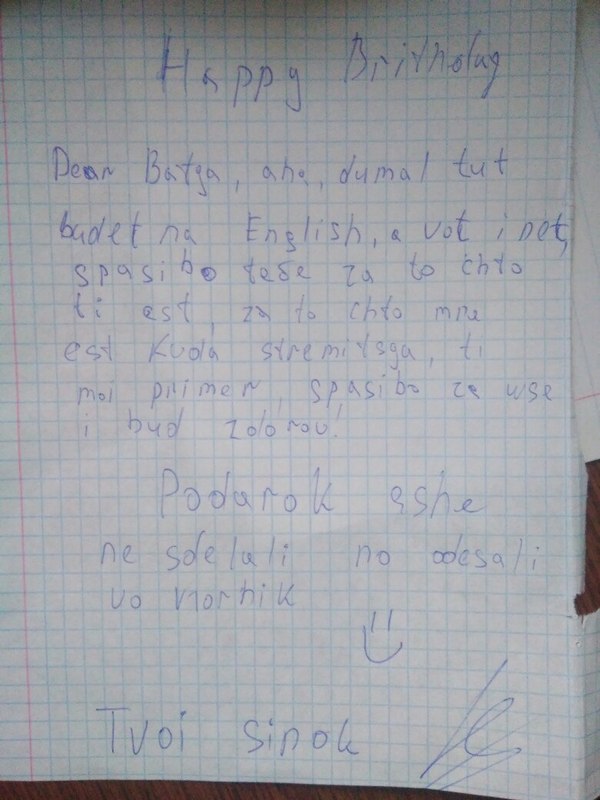 Happy Brithday
Dear Batga, aha, dumal tut
budet na English, a vot i net,
spasibo tebe za to chto
ti est, za to chto mne
est kuda stremitsga, ti
moi primer, spasibo za vse
i bud zdorov!
Podarok eshe
ne sdelali no obesali
vo vtornik
Tvoi sinok